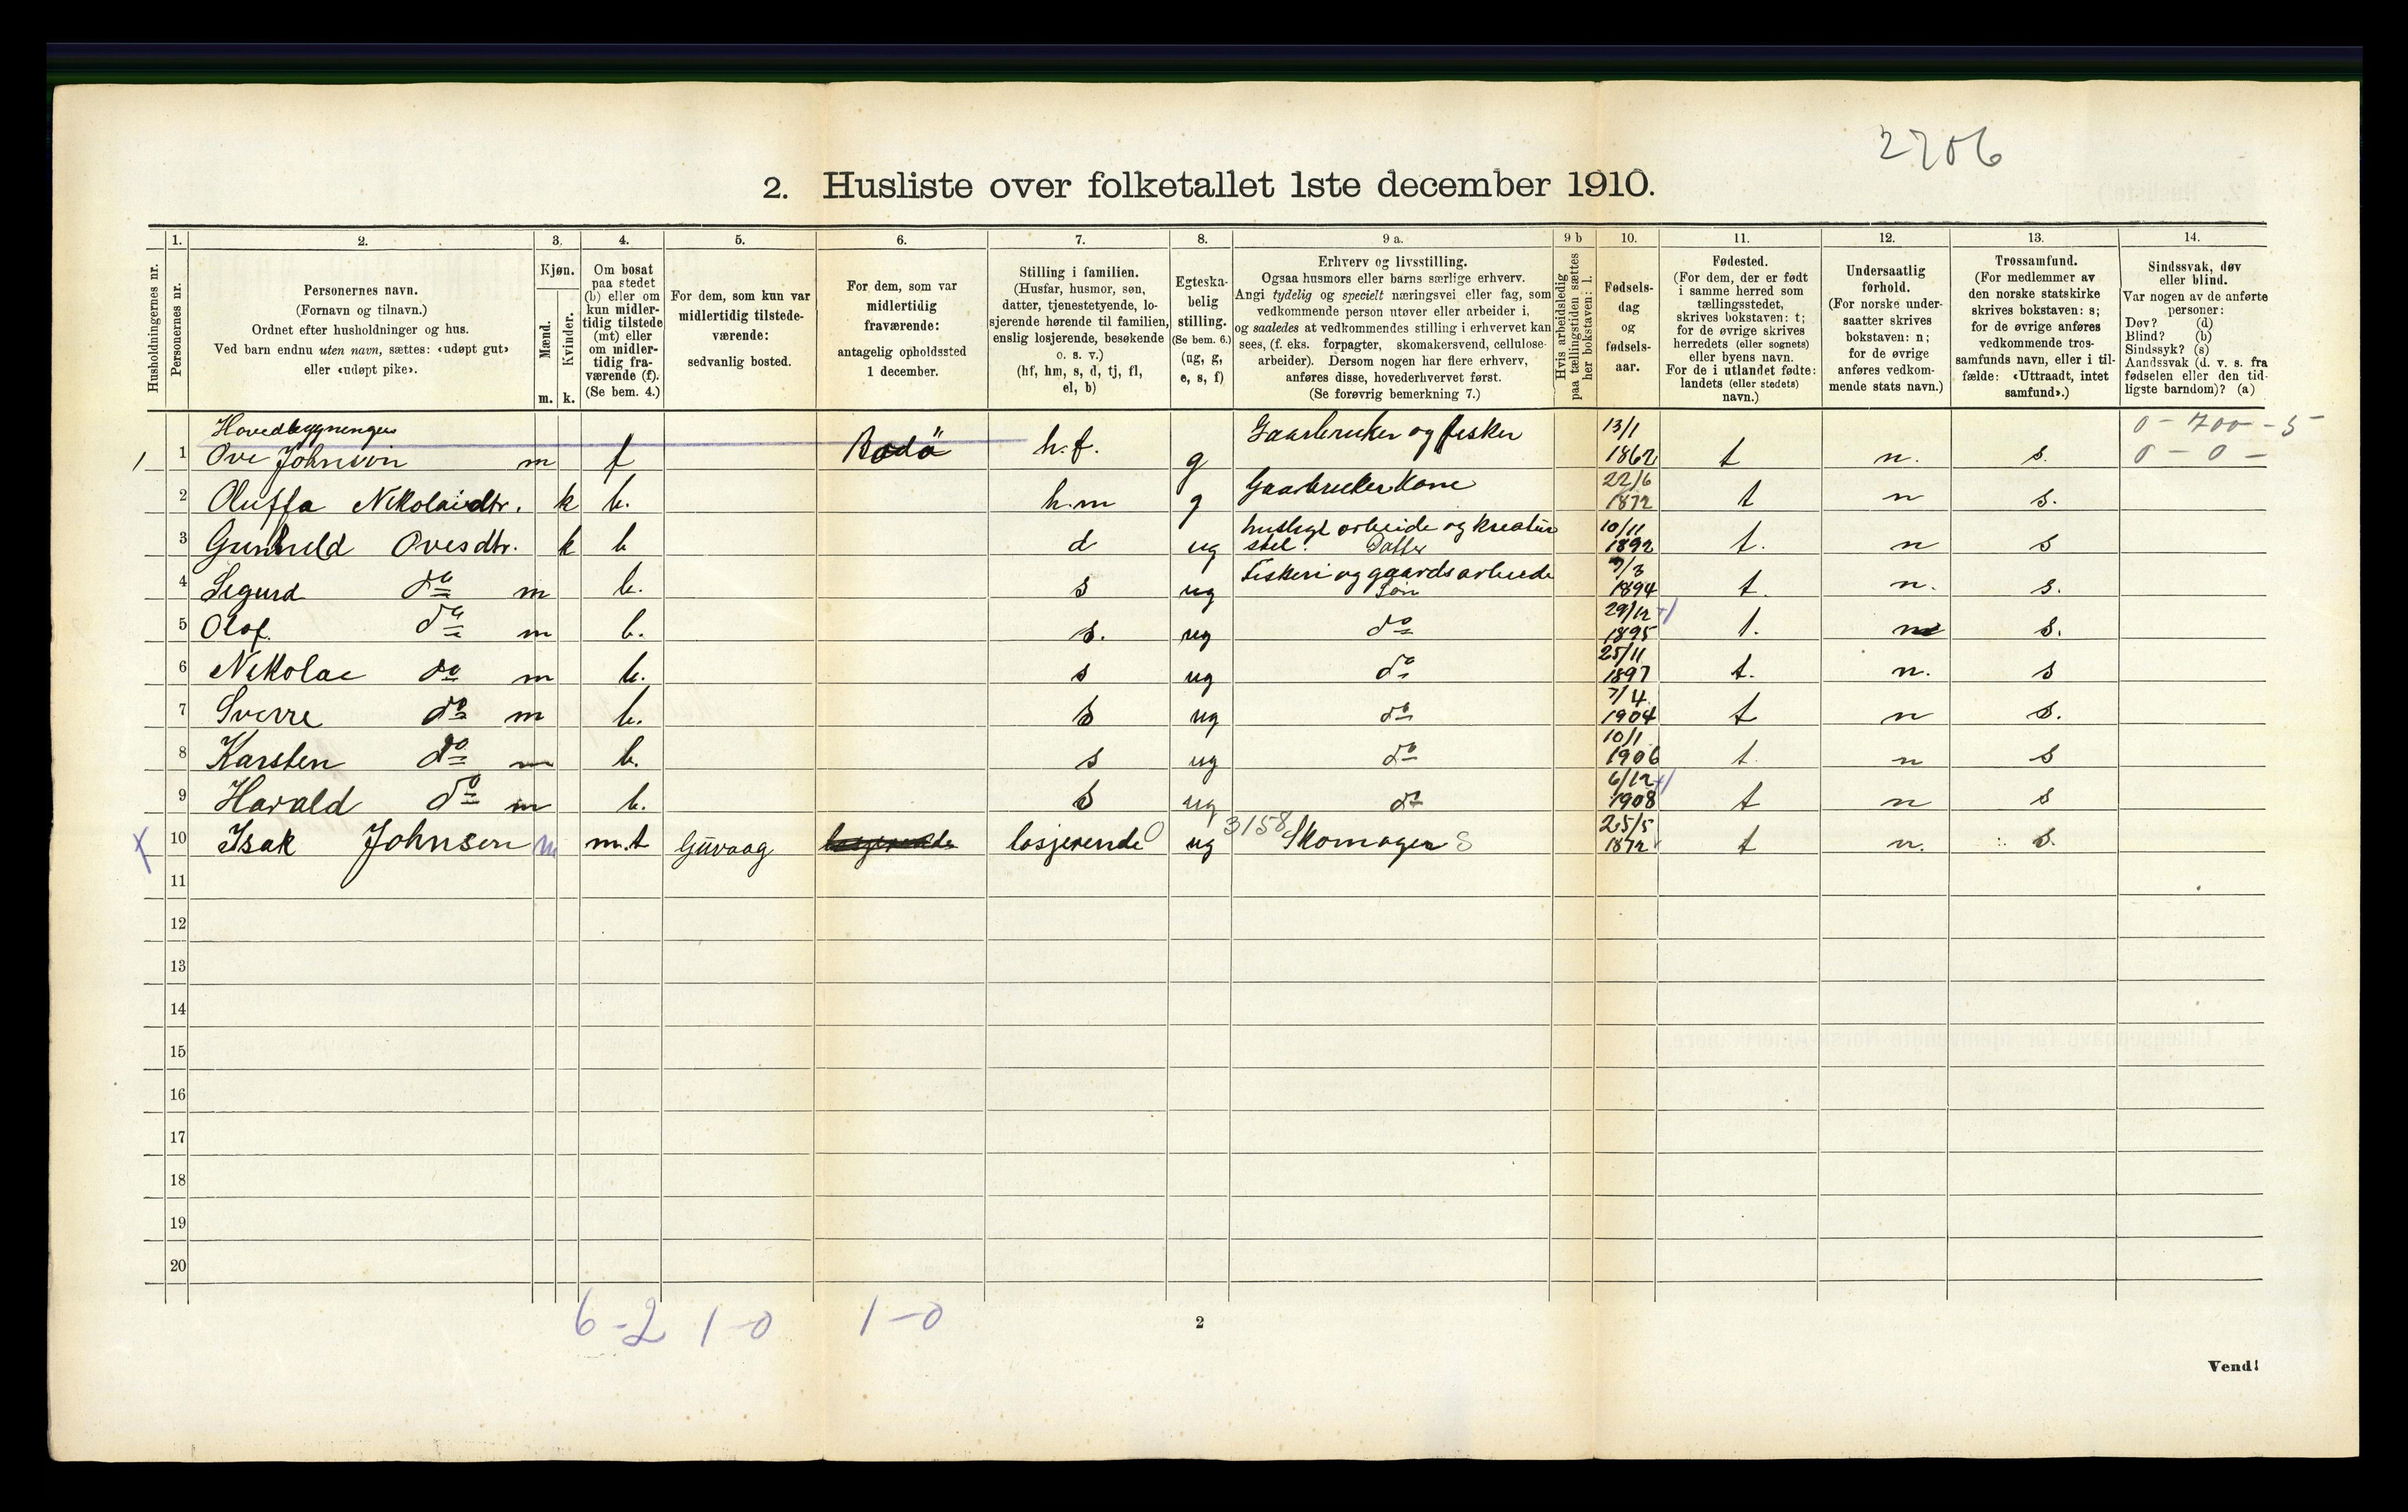 2706
2. Husliste over folketallet 1ste december 1910.
1. 2. 3. 4. 5. 6. 7. 8. 9 a. 9 b 10. 11. 12. 13. 14.
Husholdningernes nr.
Personernes nr.
Personernes navn.
(Fornavn og tilnavn.)
Ordnet efter husholdninger og hus.
Ved barn endnu uten navn, sættes: «udøpt gut»
eller «udøpt pike».
Kjøn.
Mænd.
Kvinder.
m. k.
Om bosat
paa stedet
(b) eller om
kun midler-
tidig tilstede
(mt) eller
om midler-
tidig fra-
værende (f).
(Se bem. 4.)
For dem, som kun var
midlertidig tilstede-
værende:
sedvanlig bosted.
For dem, som var
midlertidig
fraværende:
antagelig opholdssted
1 december.
Stilling i familien.
(Husfar, husmor, søn,
datter, tjenestetyende, lo-
sjerende hørende til familien,
enslig losjerende, besøkende
o. s. v.)
(hf, hm, s, d, tj, fl,
el, b)
Egteska-
belig
stilling.
(Se bem. 6.)
(ug, g,
e, s, f)
Erhverv og livsstilling.
Ogsaa husmors eller barns særlige erhverv.
Angi tydelig og specielt næringsvei eller fag, som
vedkommende person utøver eller arbeider i,
og saaledes at vedkommendes stilling i erhvervet kan
sees, (f. eks. forpagter, skomakersvend, cellulose-
arbeider). Dersom nogen har flere erhverv,
anføres disse, hovederhvervet først.
(Se forøvrig bemerkning 7.)
Hvis arbeidsledig
paa tællingstiden sættes
her bokstaven: l.
Fødsels-
dag
og
fødsels-
aar.
Fødested.
(For dem, der er født
i samme herred som
tællingsstedet,
skrives bokstaven: t;
for de øvrige skrives
herredets (eller sognets)
eller byens navn.
For de i utlandet fødte:
landets (eller stedets)
navn.)
Undersaatlig
forhold.
(For norske under-
saatter skrives
bokstaven: n;
for de øvrige
anføres vedkom-
mende stats navn.)
Trossamfund.
(For medlemmer av
den norske statskirke
skrives bokstaven: s;
for de øvrige anføres
vedkommende tros-
samfunds navn, eller i til-
fælde: «Uttraadt, intet
samfund».)
Sindssvak, døv
eller blind.
Var nogen av de anførte
personer:
Døv? (d)
Blind? (b)
Sindssyk? (s)
Aandssvak (d. v. s. fra
fødselen eller den tid-
ligste barndom)? (a)
Hovedbygningen
0 - 700 - 5
1 1 Ove Johnsen m f Bodö h.f. g Gaarbruker og fisker 13/1 1862 t n. s. 0 - 0 -
2 Oluffa Nikolaidtr. k b. h.m g Gaarbruker Kone 22/6 1872 t n s.
3 Gunhild Ovesdtr. k b d ug huslygt arbeide og kreatur stel. Datter 10/11 1892 t. n s
4 Sigurd do m b. s ug Fiskeri og gaardsarbeide Søn 7/3 1894 t. n. s.
5 Olof do m b. s. ug do 29/12 1895 t. n s.
6 Nikolae do m b. s ug do 25/11 1897 t. n. s
7 Sverre do m b. s ug do 7/4 1904 t n s.
8 Karsten do m b. s ug do 10/1 1906 t n s
9 Harald do m b. s ug do 6/12 1908 t n s
X 10 Isak Johnsen m m.t Guvaag losjerende losjerende 0 ug 3158 Skomager S 25/5 1872 t n. s.
11
12
13
14
15
16
17
18
19
20
6 - 2 1 - 0 1 - 0
2
Vend!